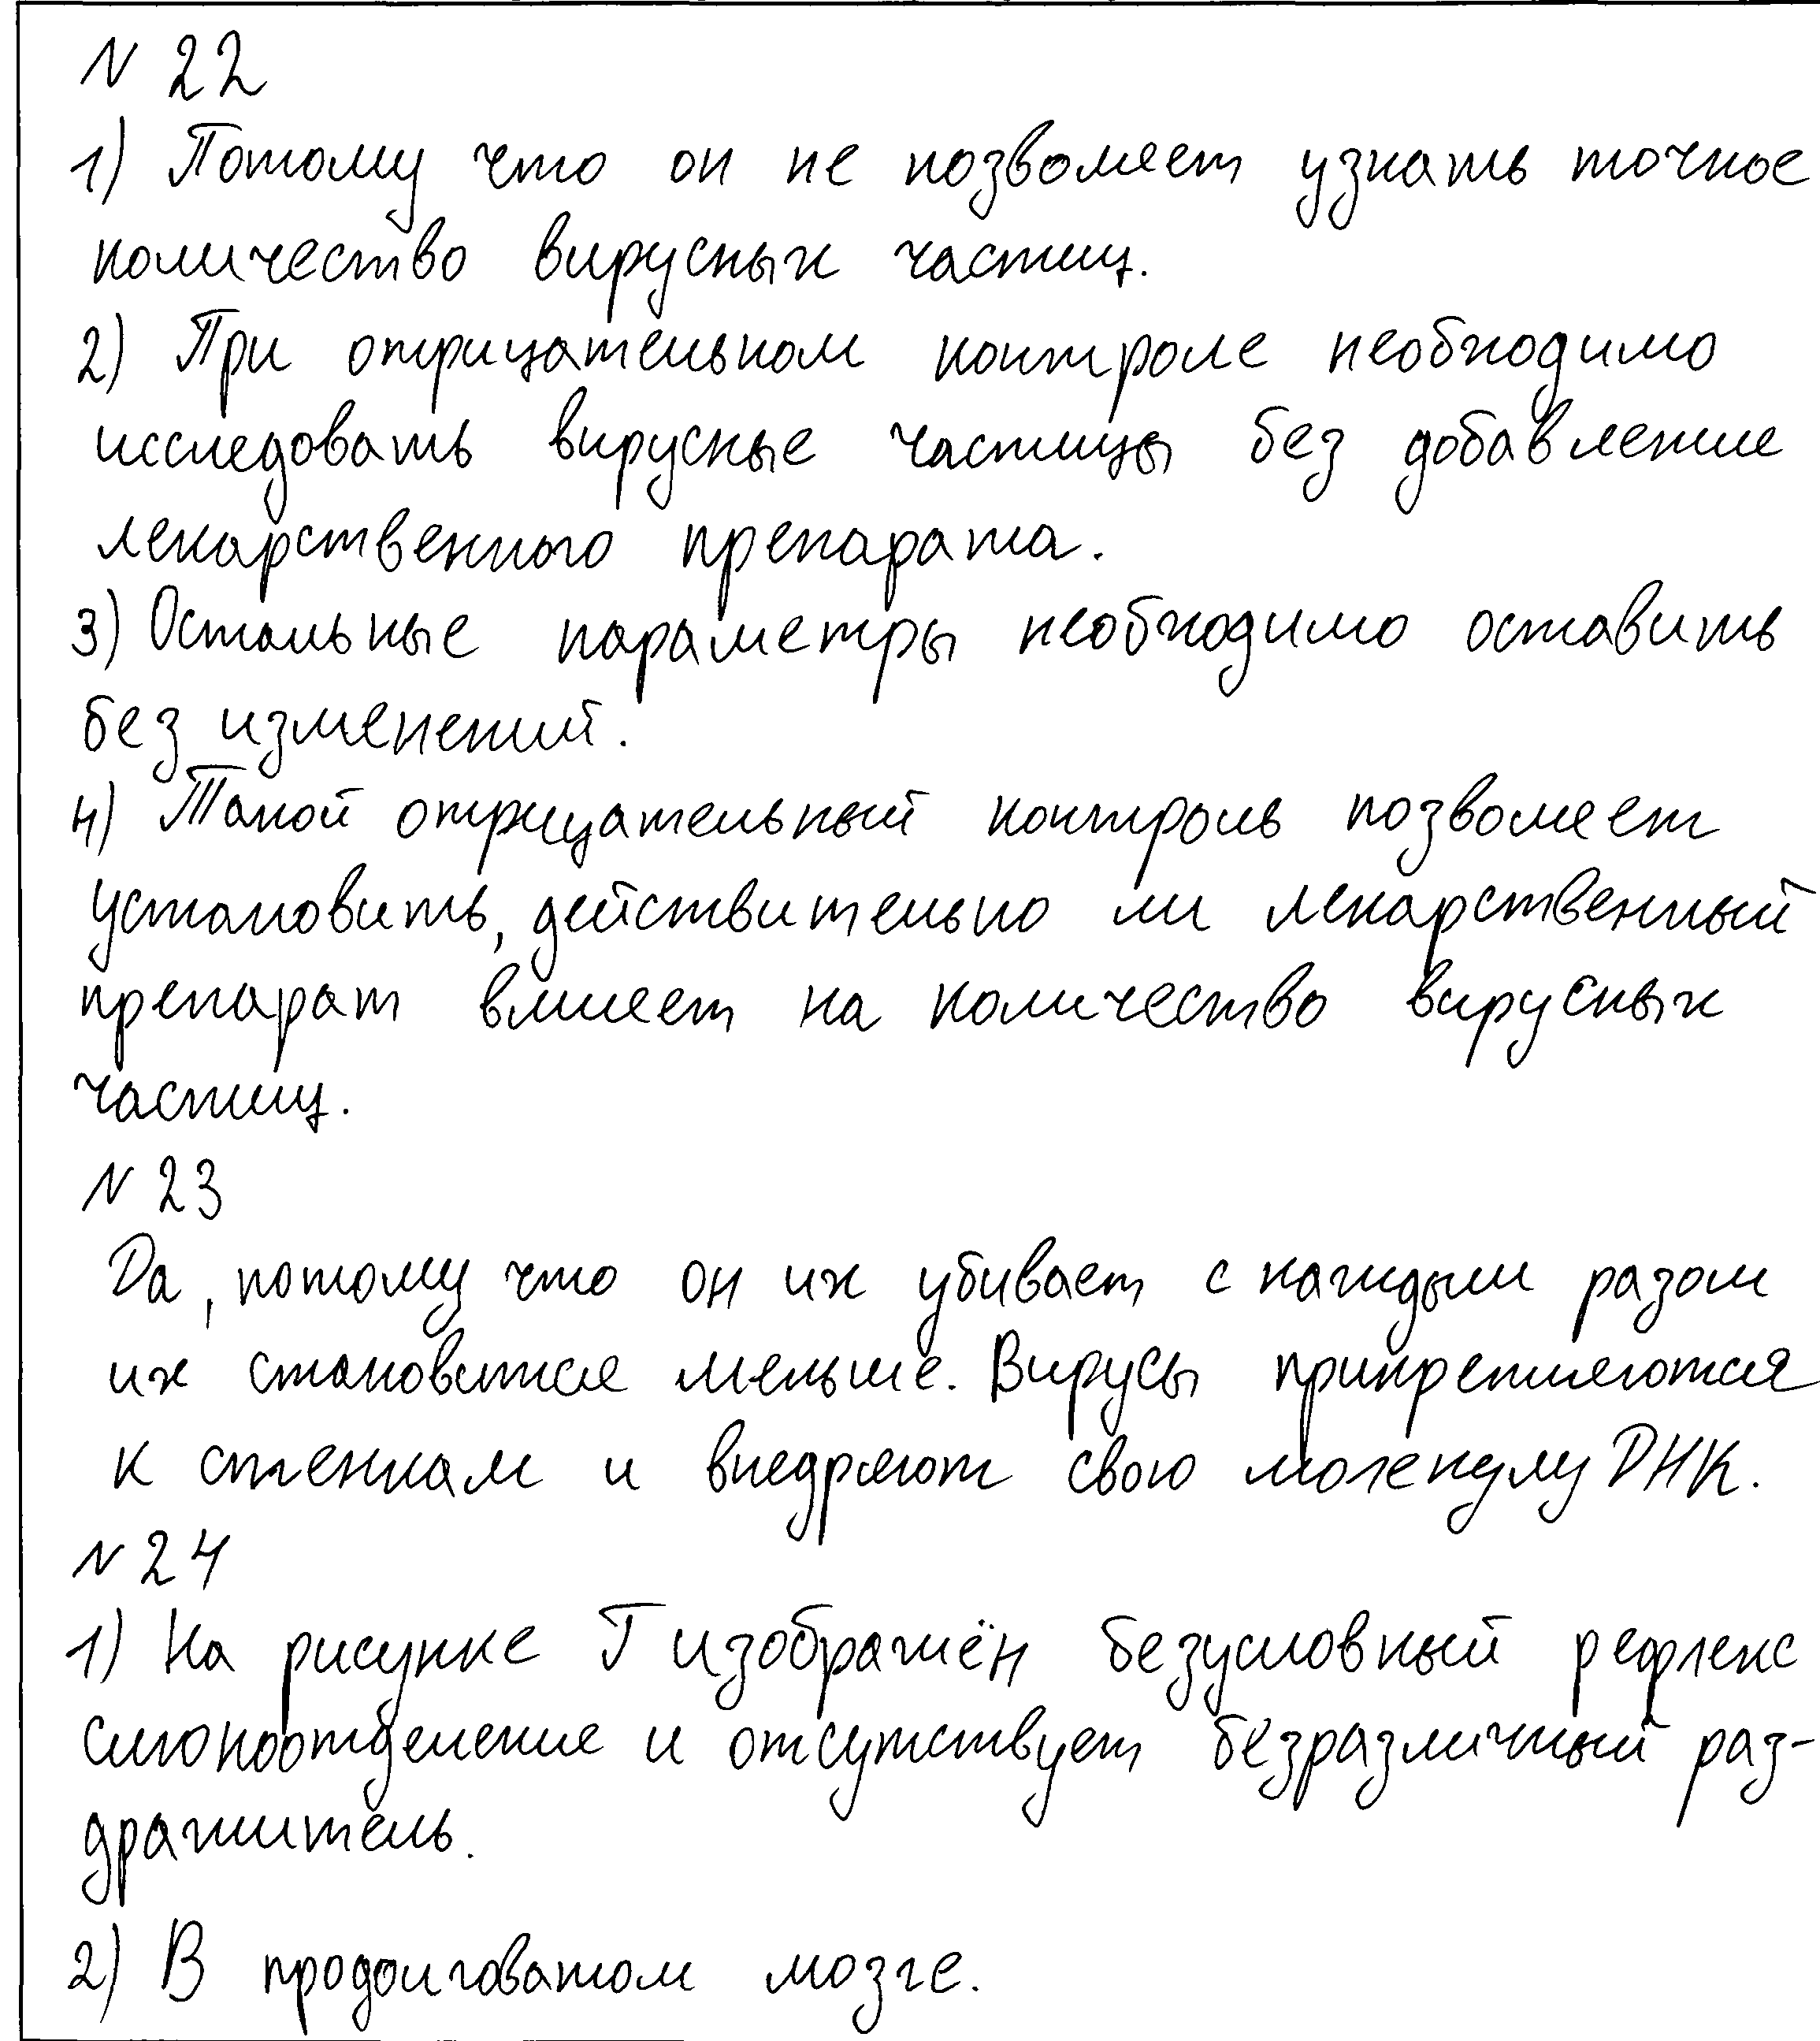 N 22
1) Потому что он не позволяет узнать точное
количество вирусных частиц.
2) При отрицательном контроле необходимо
исследовать вирусные частицы без добавление
лекарственного препарата.
3) Остальные параметры необходимо оставить
без изменений.
4) Такой отрицательный контроль позволяет
установить, действительно ли лекарственный
препарат влияет на количество вирусных
частиц.
N 23
Да, потому что он их убивает с каждым разом
их становится меньше. Вирусы прикрепляются
к стенкам и внедряют свою молекулу ДНК.
N 24
1) На рисунке Г изображён безусловный рефлекс
слюноотделение и отсутствует безразличный раз-
дражитель.
2) В продолговатом мозге.